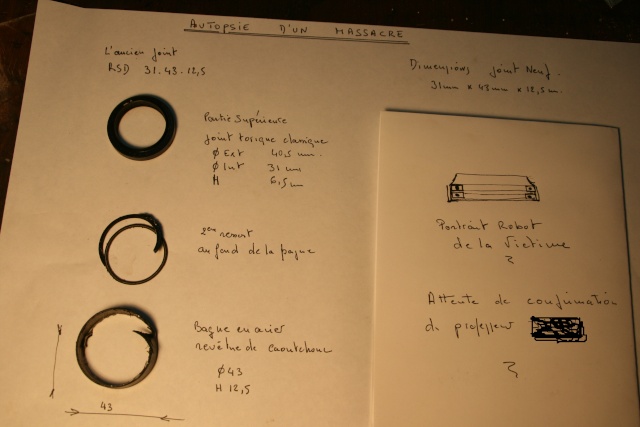 AUTOPSIE D'UN MASSACRE
L'ancien joint
RSD 31.43-12,5
Dimensions joint Neuf.
31mm x 43mm x 12,5m.
Partie Supérieure
joint torique classique
Ø Ext 40,5 mm.
Ø Int 31 mm
H 6,5m
2ème ressort
au fond de la
Bague en acier
revêtue de caoutchouc
Ø43
H 12,5
43
Portrait Robot
de la Victime
?
Attente de confirmation
du professeur
?